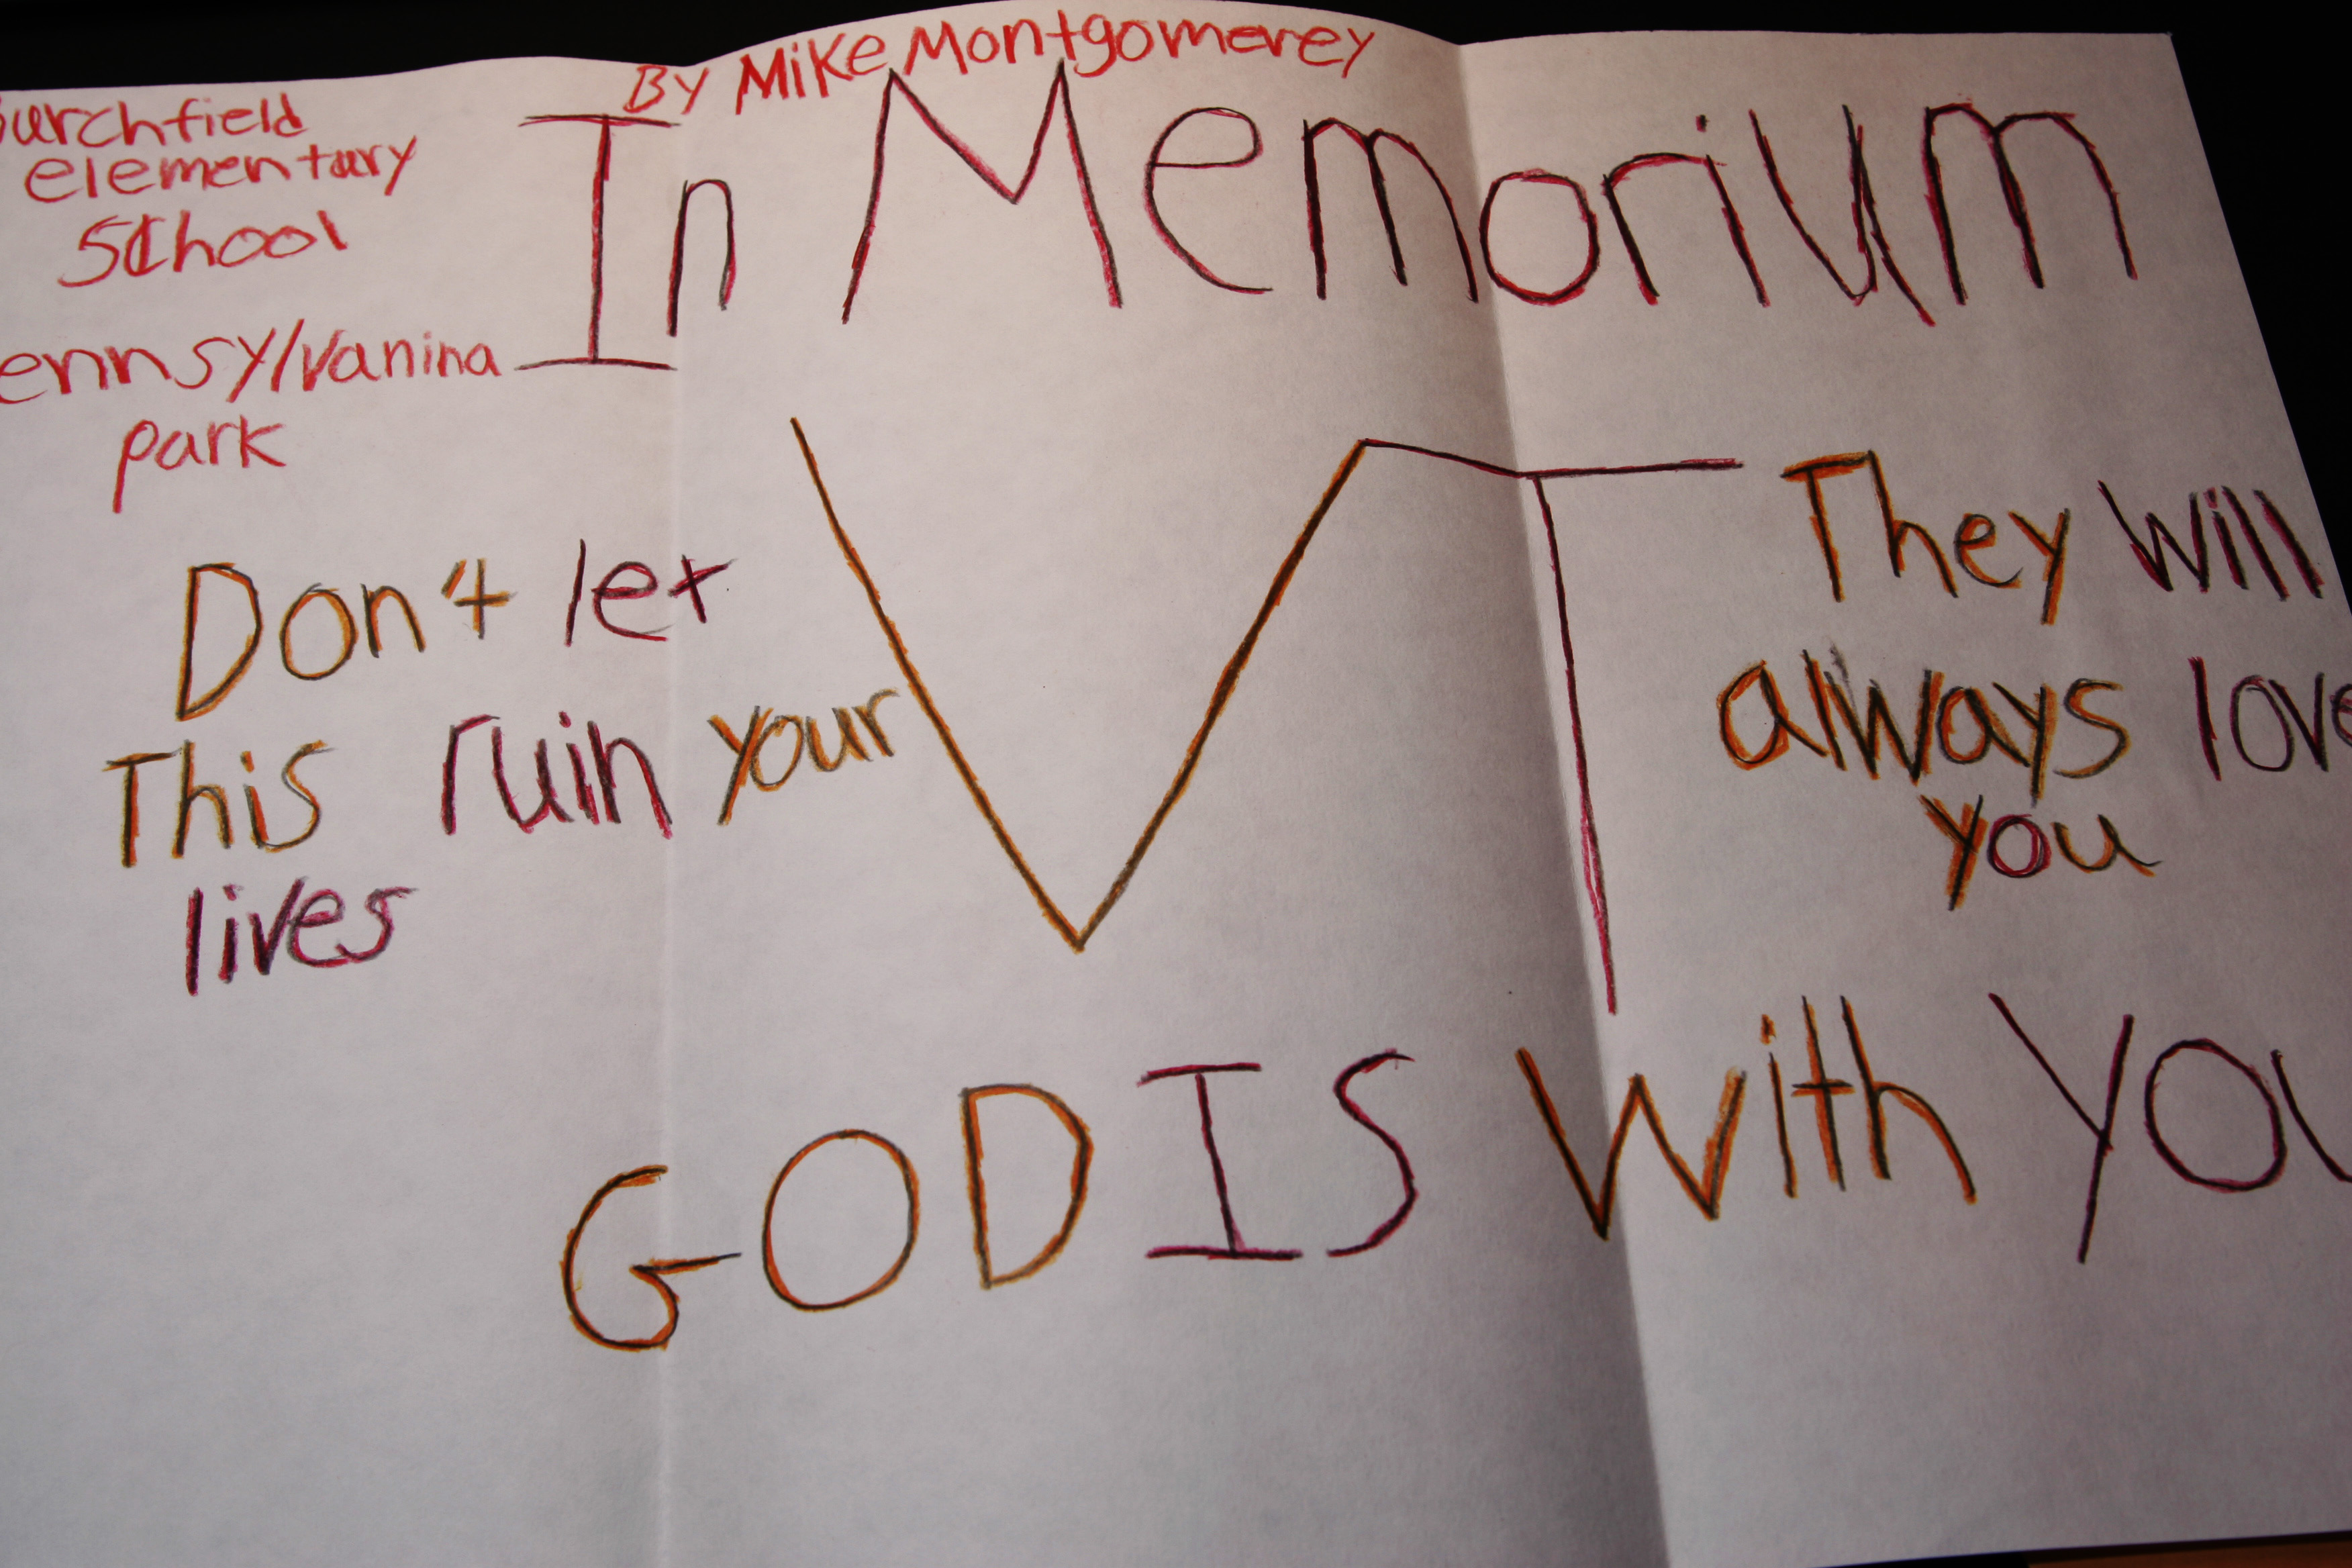 By Mike Montgomerey
urchfield
elementary
School
ennsylvanina
park
In Memorium
VT
Don't let
This ruin your
lives
They will
always love
you
GOD IS With YOU